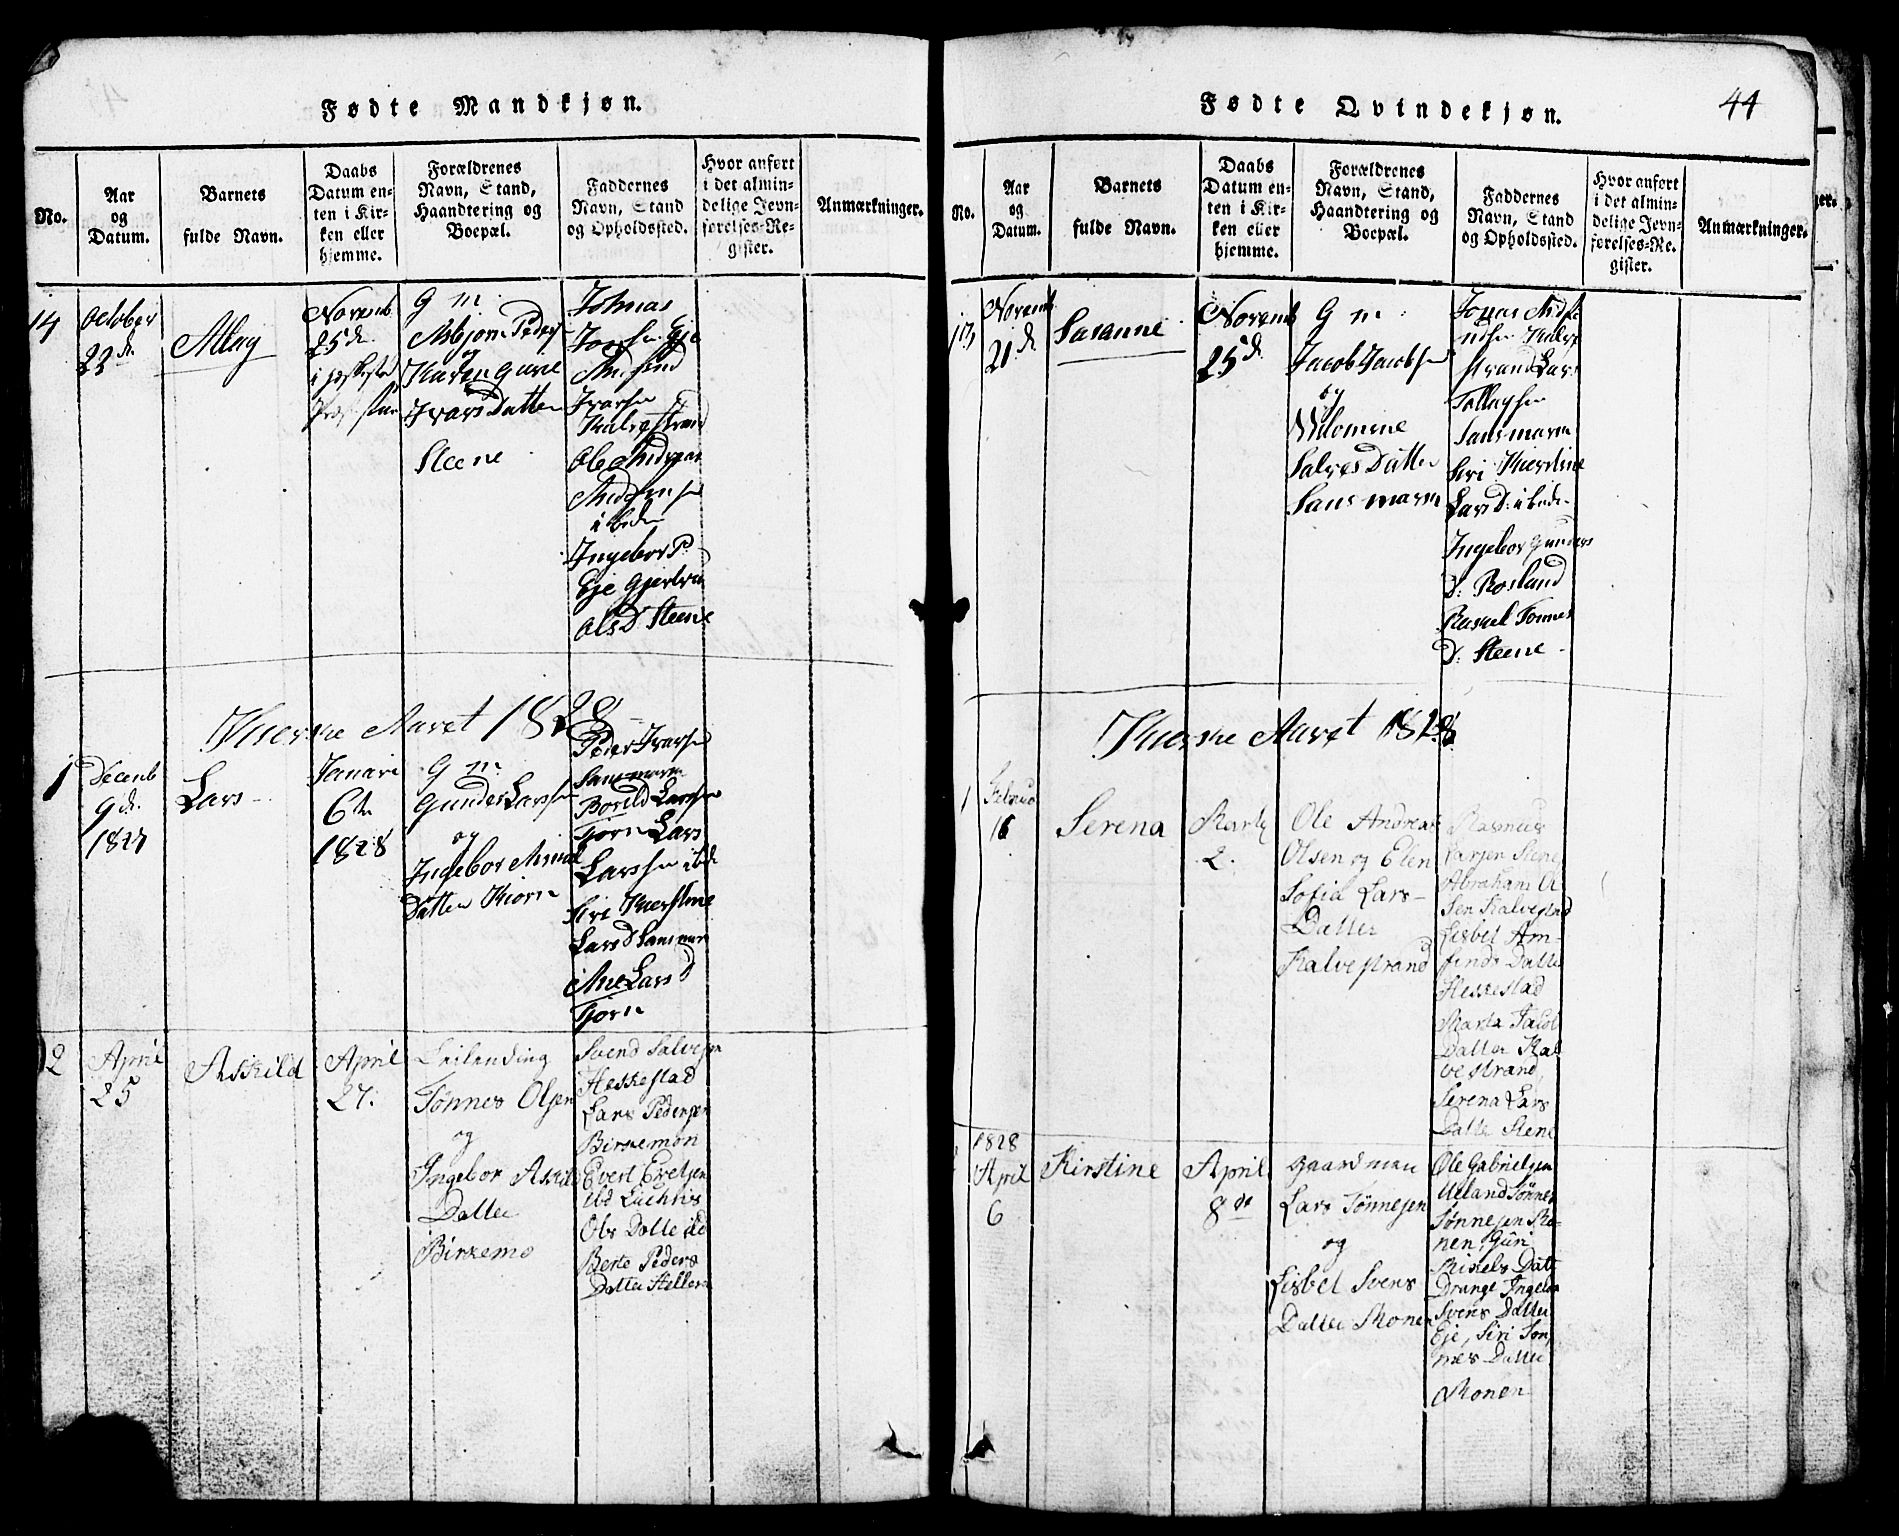 Fødte Mandkjøn.
No.
Aar
og
Datum.
Barnets
fulde Navn.
Daabs
Datum en-
ten i Kir-
ken eller
hjemme.
Forældrenes
Navn, Stand,
Haandtering og
Boepæl.
Faddernes
Navn, Stand
og Opholdssted.
Hvor anført
i det almin-
delige Jevn-
førelses-Re-
gister.
Anmærkninger.
14
October
22 d.
Novemb
25 d.
i
G m.
Asbjørn Peders
og
Karen
Ivars Datter
Steene
Eje
Ivarsen
Ole Andreas
i bede
Ingebor P.
Eje Gjertru
Ols D Steene
Aaret 1828
1
Decemb
9 d.
1827
Lars
Januari
6te
1828
G m.
Gunder Larsen
og
Ingebor
Datter
Peder Ivarsen
Larsen
Lars
Larsen ibde
Siri
Lars D
Ane Lars D
Tjorn
2
April
25
Askild
April
27.
Leilending
Tønnes Olsen
og
Ingebor Askil
Datter
Birkemo
Svend Salvesen
Heskestad
Lars Pedersen
Birkemon
Evert Evetsen
Ols Datter ibd
Berte Peders
Datter
Fødte Qvindekjøn.
44
No.
Aar
og
Datum.
Barnets
fulde Navn.
Daabs
Datum en-
ten i Kir-
ken eller
hjemme.
Forældrenes
Navn, Stand,
Haandtering og
Boepæl.
Faddernes
Navn, Stand
og Opholdssted.
Hvor anført
i det almin-
delige Jevn-
førelses-Re-
gister.
Anmærkninger.
Novemb
21 d.
Susanne
Novemb
25 d.
G m.
Jacob Jacobsen
og
Salves Datter
Sansmarm
strand Lars
Tollagsen
Sansmarm
Siri
Lars D: ibede
Ingebor Gunders
D: Rosland
Raskel Tønnes
D: Steene
Aaret 1828
1
Februa
16
Serena
Marty
2.
Ole Andreas
Olsen og Elen
Sofia Lars-
Datter
Kalvestrand
Rasmus
Abraham Ol
sen Kalvestrad
Lisbet Am-
finds Datter
Heskestad
Marta Jacob
Datter Kal
vestrand,
Serena Lars
Datter Stene
1828
April
6
Kirstine
April
8de
gaardman
Lars Tønnesen
og
Lisbet Svens
Datter Monen
Ole Gabrielsen
Ueland Tønnes
Tønnesen Mo-
nen, Guri
Mikels Datt
Drange Ingebor
Svens Datter
Eje, Siri Ton
nes Datter
Monen